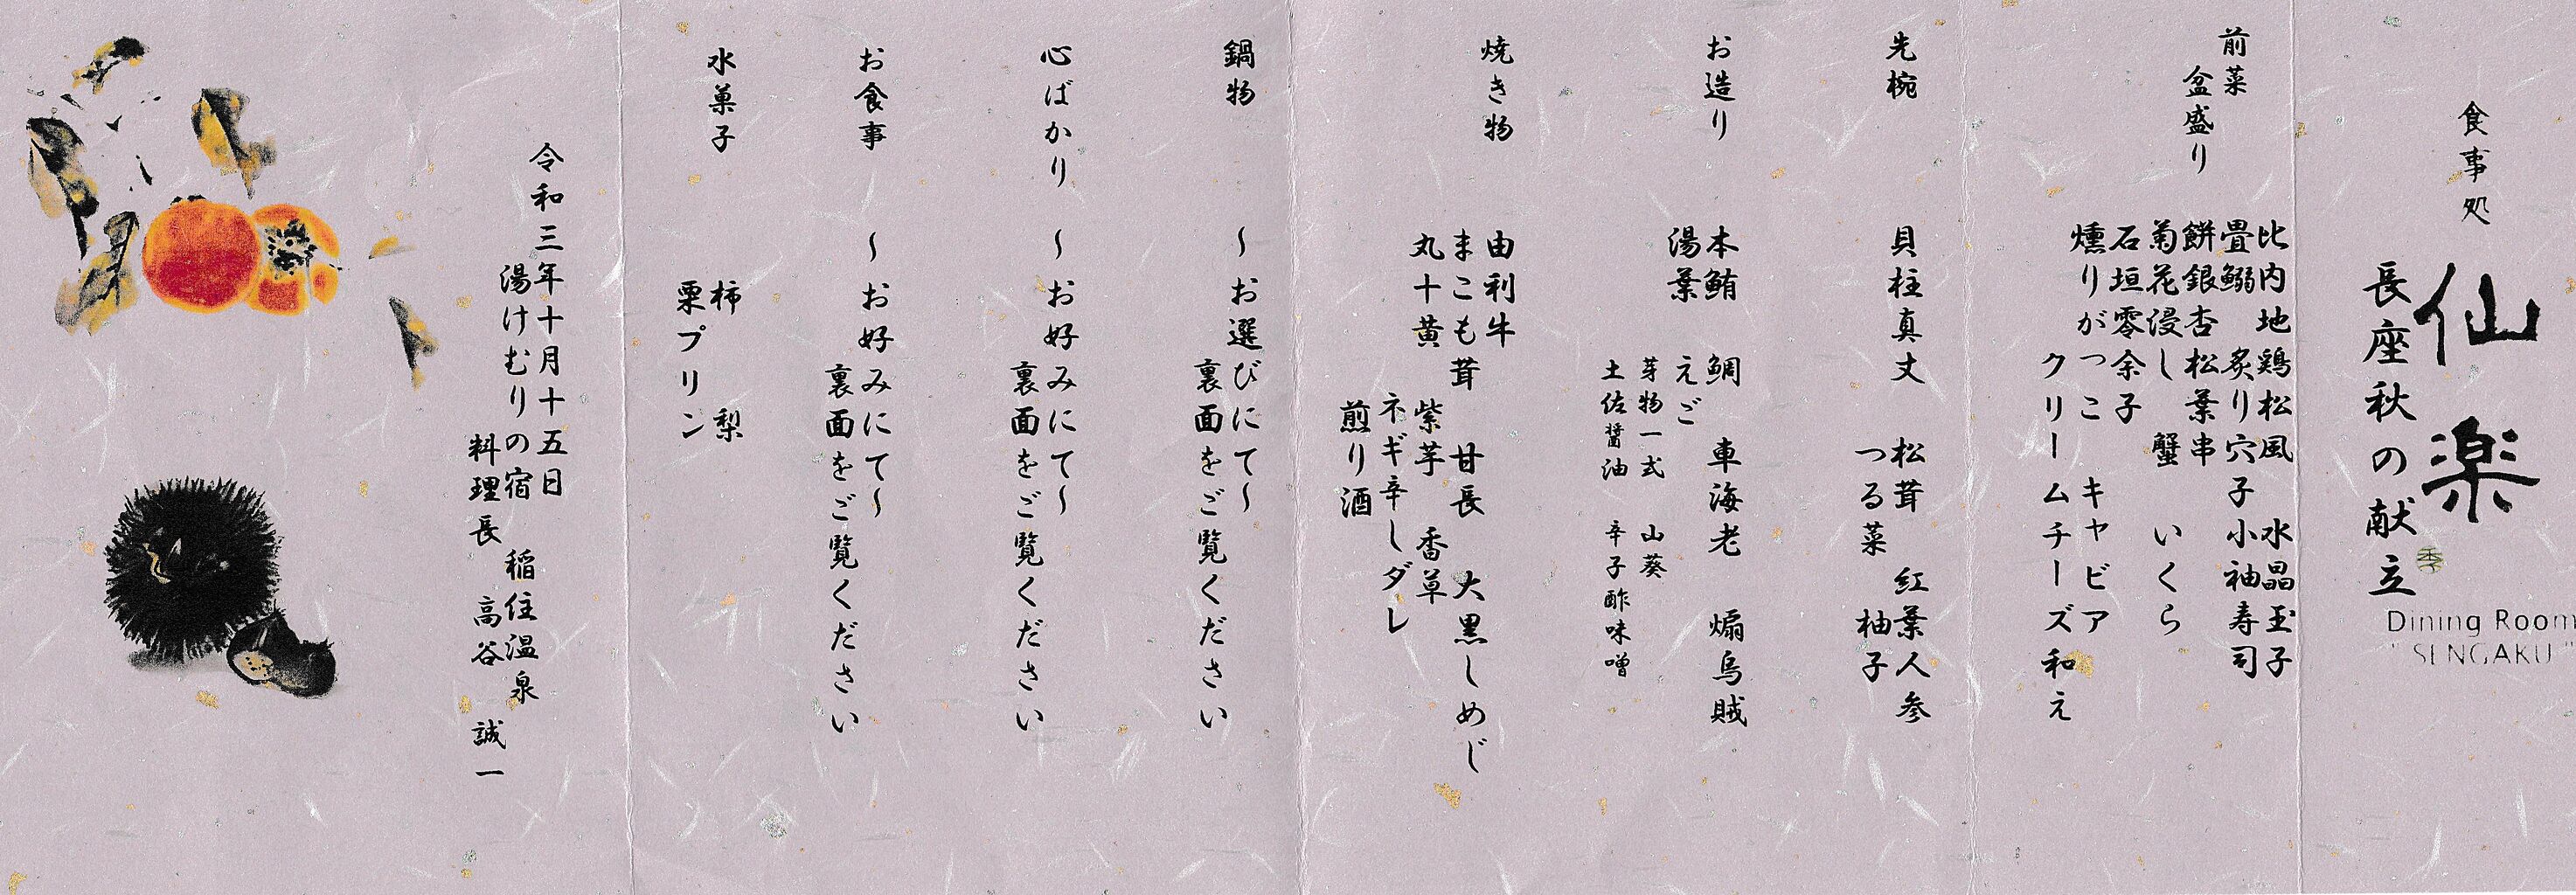 食事処
仙楽
長座秋の献立
Dining Room
"SENGAKU"
前菜
盆盛り
比内地鶏松風　水晶玉子
畳鰯　炙り穴子小袖寿司
餅銀杏松葉串
菊花浸し　蟹　いくら
石垣零余子
燻りがっこ　キャビア
クリームチーズ和え
先椀
貝柱真丈　松茸　紅葉人参
つる菜　柚子
お造り
本鮪　鯛　車海老　煽烏賊
湯葉　えご
芽物一式　山葵
土佐醤油　辛子酢味噌
焼き物
由利牛
まこも茸　甘長　大黒しめじ
丸十黄　紫芋　香草
ネギ辛しダレ
煎り酒
鍋物
〜お選びにて〜
裏面をご覧ください
心ばかり
〜お好みにて〜
裏面をご覧ください
お食事
〜お好みにて〜
裏面をご覧ください
水菓子
柿　梨
栗プリン
令和三年十月十五日
湯けむりの宿　稲住温泉
料理長　高谷　誠一